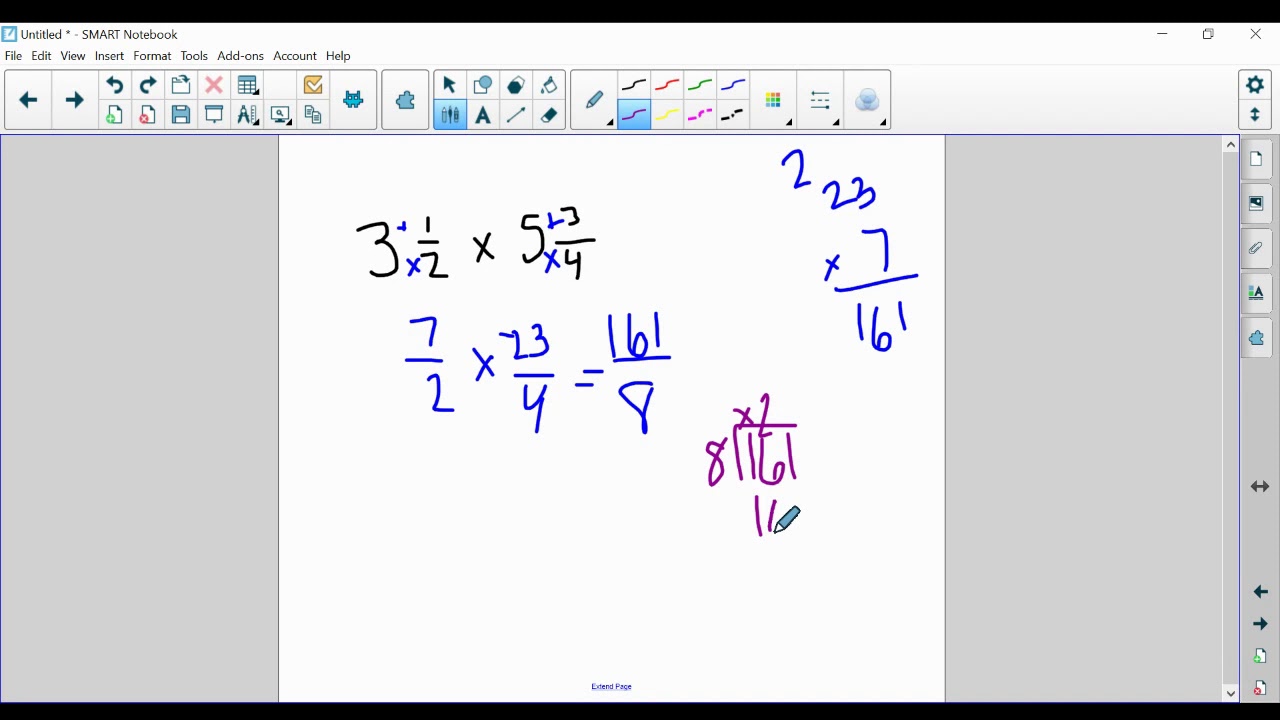 Untitled * - SMART Notebook
File Edit View Insert Format Tools Add-ons Account Help
2
23
× 7
161
3 + × 1/2 × 5 + × 3/4
7/2 × 23/4 = 161/8
× 2
8 161
16
Extend Page